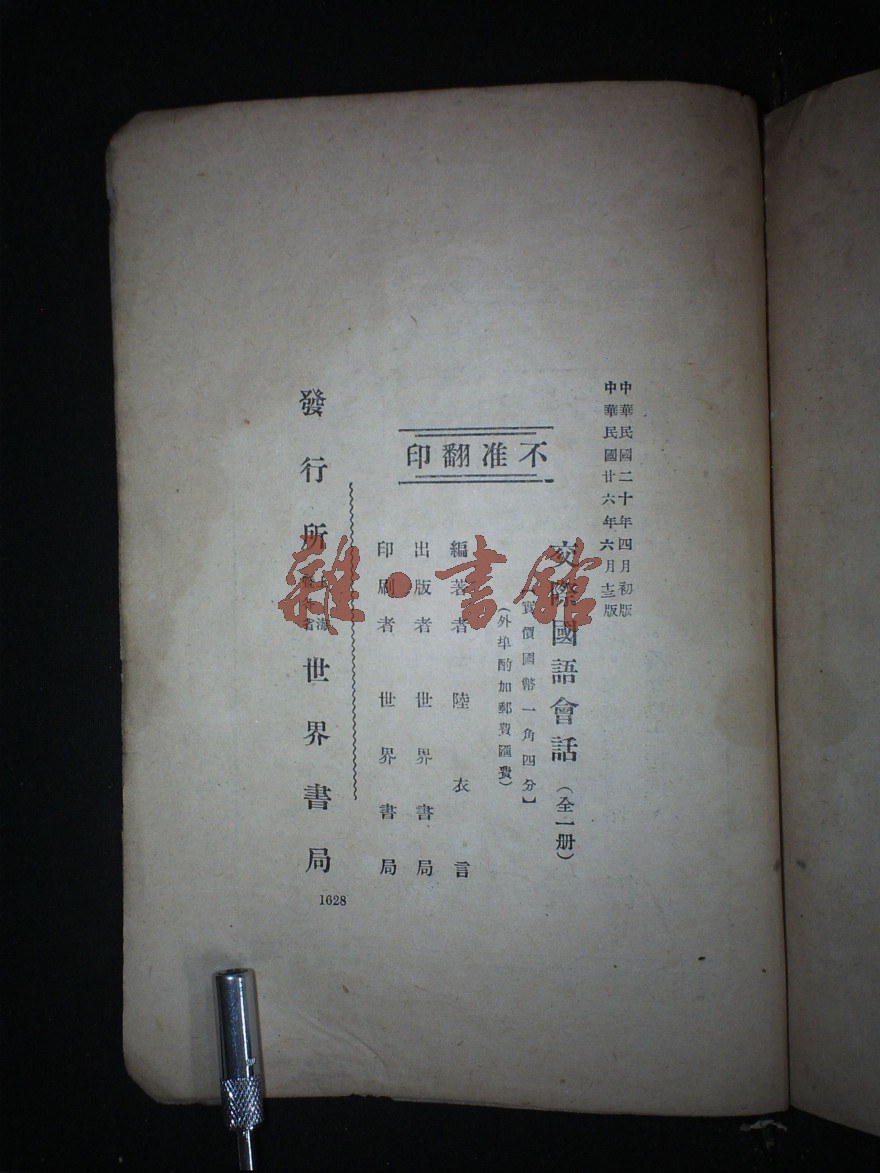 中華民國二十年四月初版
中華民國廿六年六月十三版
交際國語會話（全一册）
【實價國幣一角四分】
（外埠酌加郵費匯費）
不准翻印
編著者 陸衣言
出版者 世界書局
印刷者 世界書局
發行所 上海 世界書局
1628
雜·書館